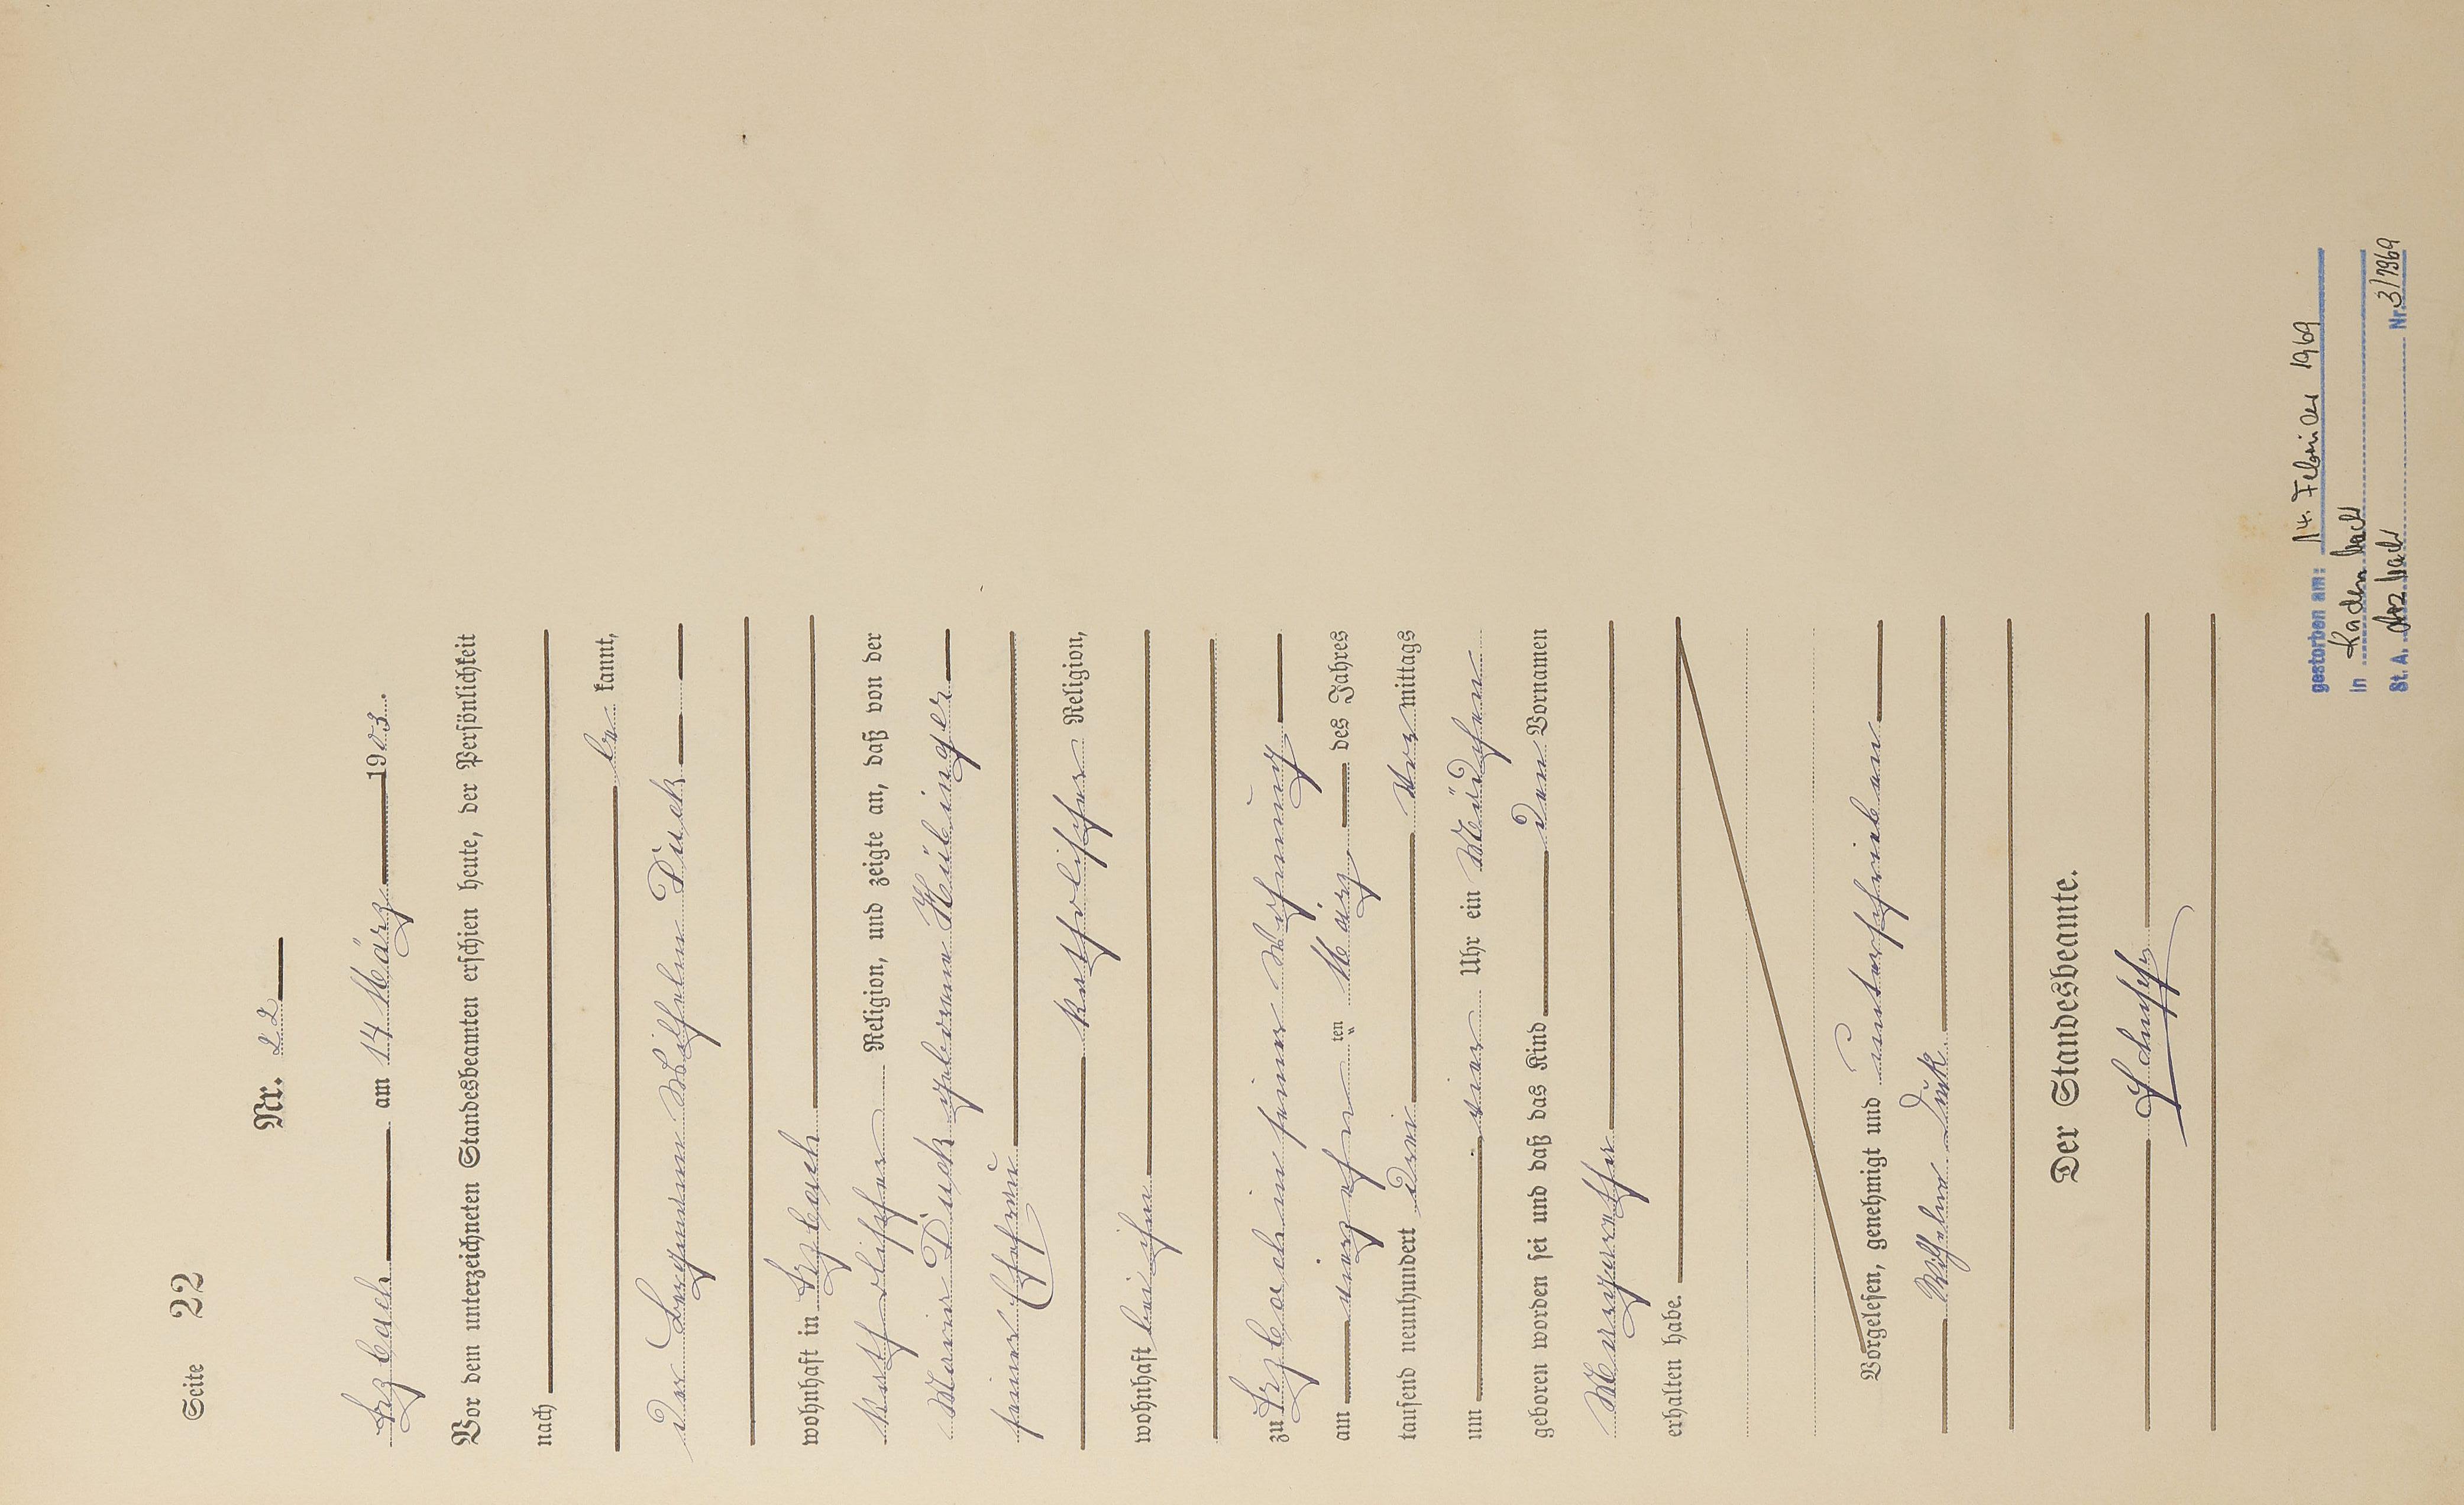 Seite 22
Nr. 22
Arzbach am 14 März 1903.
Vor dem unterzeichneten Standesbeamten erschien heute, der Persönlichkeit
nach
be kannt,
der Bergmann Wilhelm Dück
wohnhaft in Arzbach
katholischer Religion, und zeigte an, daß von der
Maria Dück geborene Hübinger
seiner Ehefrau
katholischer Religion,
wohnhaft bei ihm
zu Arzbach in seiner Wohnung
am vierzehn ten März des Jahres
tausend neunhundert drei Vor mittags
um vier Uhr ein Mädchen
geboren worden sei und daß das Kind den Vornamen
Margaretha
erhalten habe.
Vorgelesen, genehmigt und unterschrieben
Wilhelm Dück
Der Standesbeamte.
gestorben am: 14. Februar 1969
in Kadenbach
St. A. Arzbach Nr. 3/1969